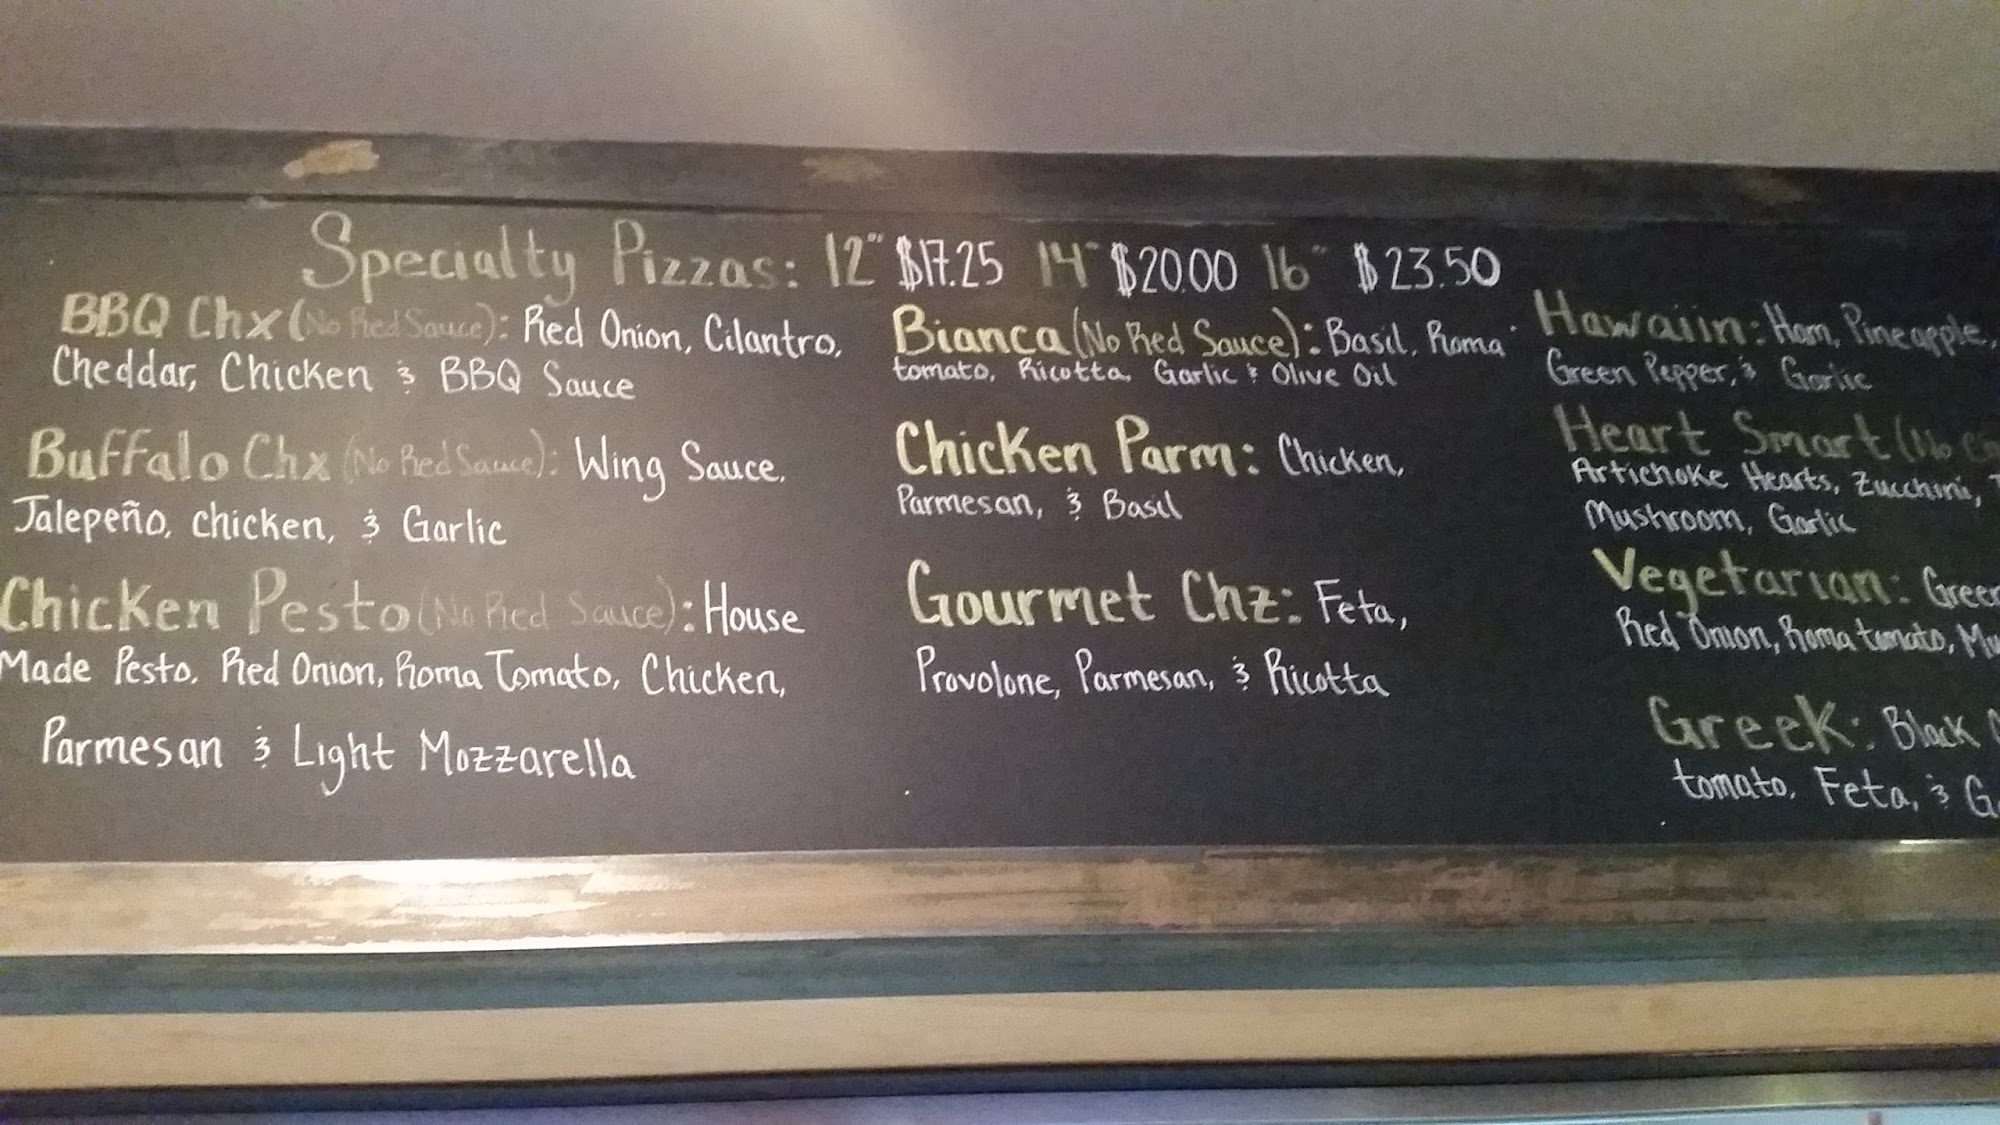 Specialty Pizzas: 12" $17.25 14" $20.00 16" $23.50
BBQ Chx (No Red Sauce): Red Onion, Cilantro,
Cheddar, Chicken & BBQ Sauce
Buffalo Chx (No Red Sauce): Wing Sauce,
Jalepeño, chicken, & Garlic
Chicken Pesto (No Red Sauce): House
Made Pesto, Red Onion, Roma Tomato, Chicken,
Parmesan & Light Mozzarella
Bianca (No Red Sauce): Basil, Roma
tomato, Ricotta, Garlic & Olive Oil
Chicken Parm: Chicken,
Parmesan, & Basil
Gourmet Chz: Feta,
Provolone, Parmesan, & Ricotta
Hawaiin: Ham, Pineapple,
Green Pepper, & Garlic
Heart Smart (No
Artichoke Hearts, Zucchini,
Mushroom, Garlic
Vegetarian: Green
Red Onion, Roma tomato,
Greek: Black
tomato, Feta, &